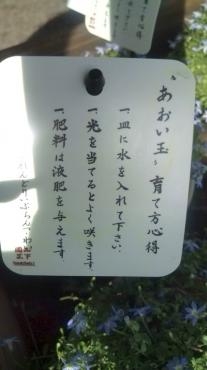 あおい玉〜育て方心得
一、皿に水を入れて下さい。
一、光を当てるとよく咲きます。
一、肥料は液肥を与えます。